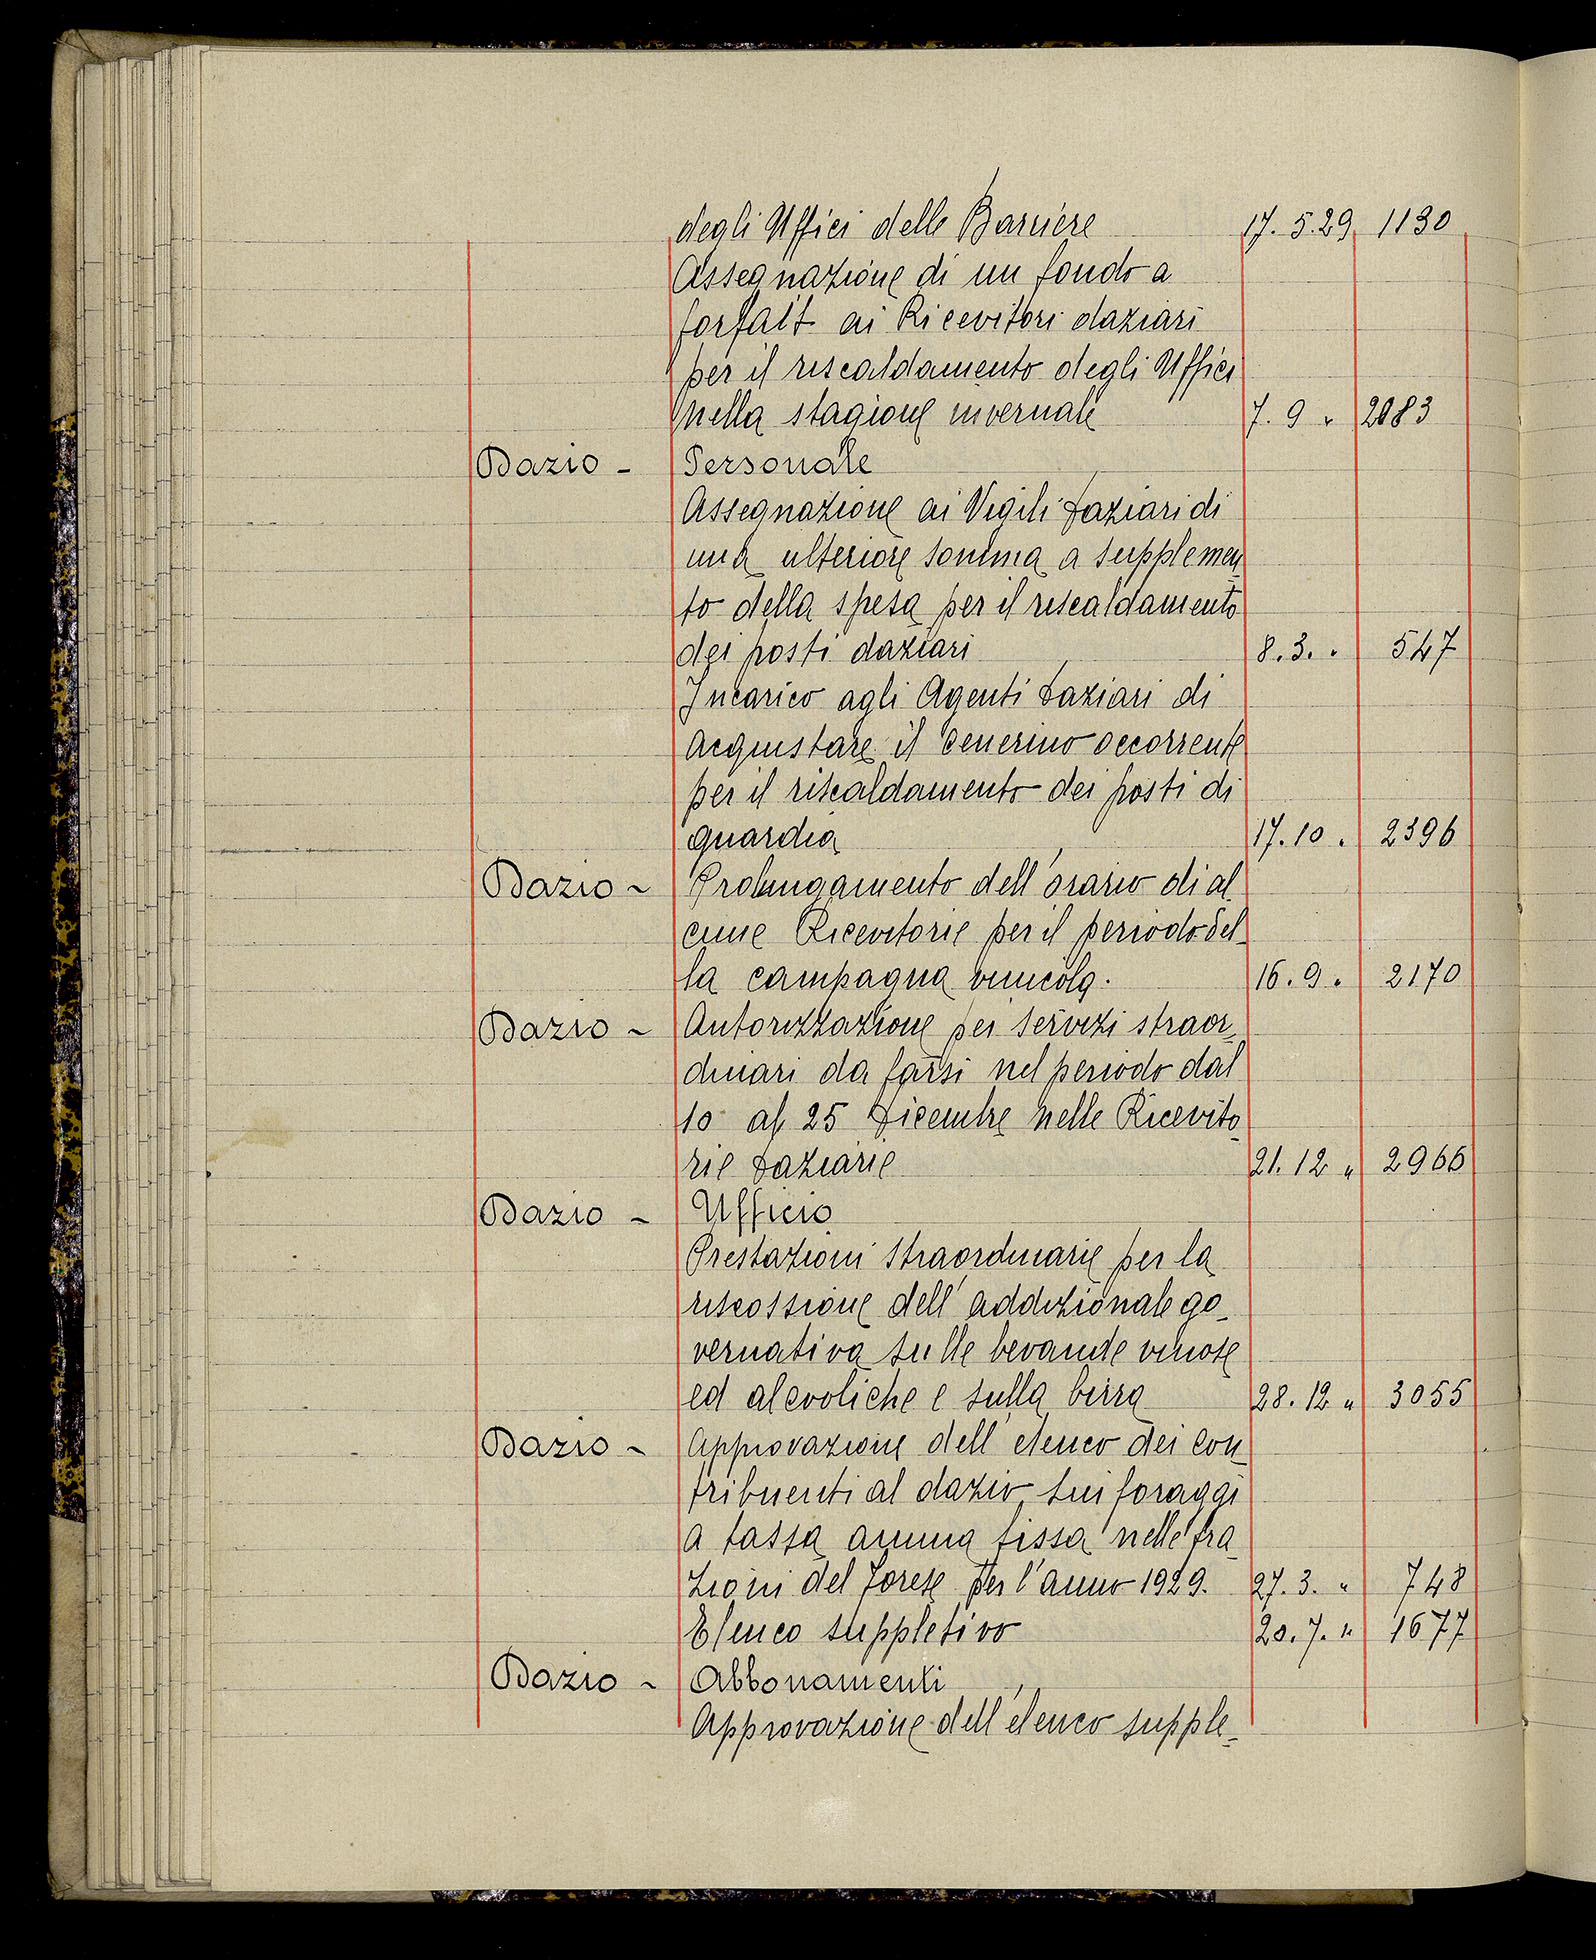 degli Uffici delle Barriere 17. 5. 29 1130
Assegnazione di un fondo a
forfait ai Ricevitori daziari
per il riscaldamento degli Uffici
nella stagione invernale 7. 9 " 2083
Dazio - Personale
Assegnazione ai Vigili daziari di
una ulteriore somma a supplemen-
to della spesa per il riscaldamento
dei posti daziari 8. 3. " 547
Incarico agli Agenti daziari di
acquistare il cenerino occorrente
per il riscaldamento dei posti di
guardia 17. 10 " 2396
Dazio ~ Prolungamento dell'orario di al-
cune Ricevitorie per il periodo del-
la campagna vinicola. 16. 9. " 2170
Dazio ~ Autorizzazione pei servizi straor-
dinari da farsi nel periodo dal
10 al 25 Dicembre nelle Ricevito-
rie daziarie 21. 12 " 2966
Dazio ~ Ufficio
Prestazioni straordinarie per la
riscossione dell'addizionale go-
vernativa sulle bevande vinose
ed alcooliche e sulla birra 28. 12 " 3055
Dazio ~ Approvazione dell'elenco dei con-
tribuenti al dazio sui foraggi
a tassa annua fissa nelle fra-
zioni del Forese per l'anno 1929. 27. 3. " 748
Elenco suppletivo 20. 7. " 1677
Dazio ~ Abbonamenti
Approvazione dell'elenco supple-